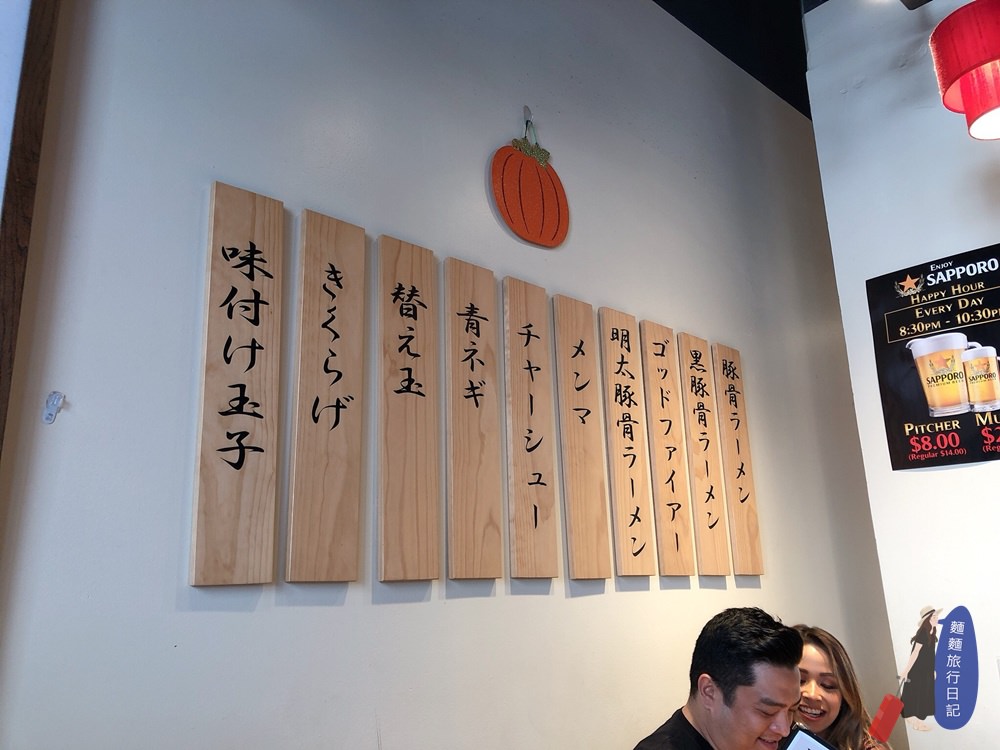 豚骨ラーメン
黒豚骨ラーメン
ゴッドファイアー
明太豚骨ラーメン
メンマ
チャーシュー
青ネギ
替え玉
きくらげ
味付け玉子
ENJOY
SAPPORO
HAPPY HOUR
EVERY DAY
8:30PM - 10:30P
SAPPORO
PREMIUM BEER
SAPPORO
PITCHER
$8.00
(Regular $14.00)
麵麵旅行日記